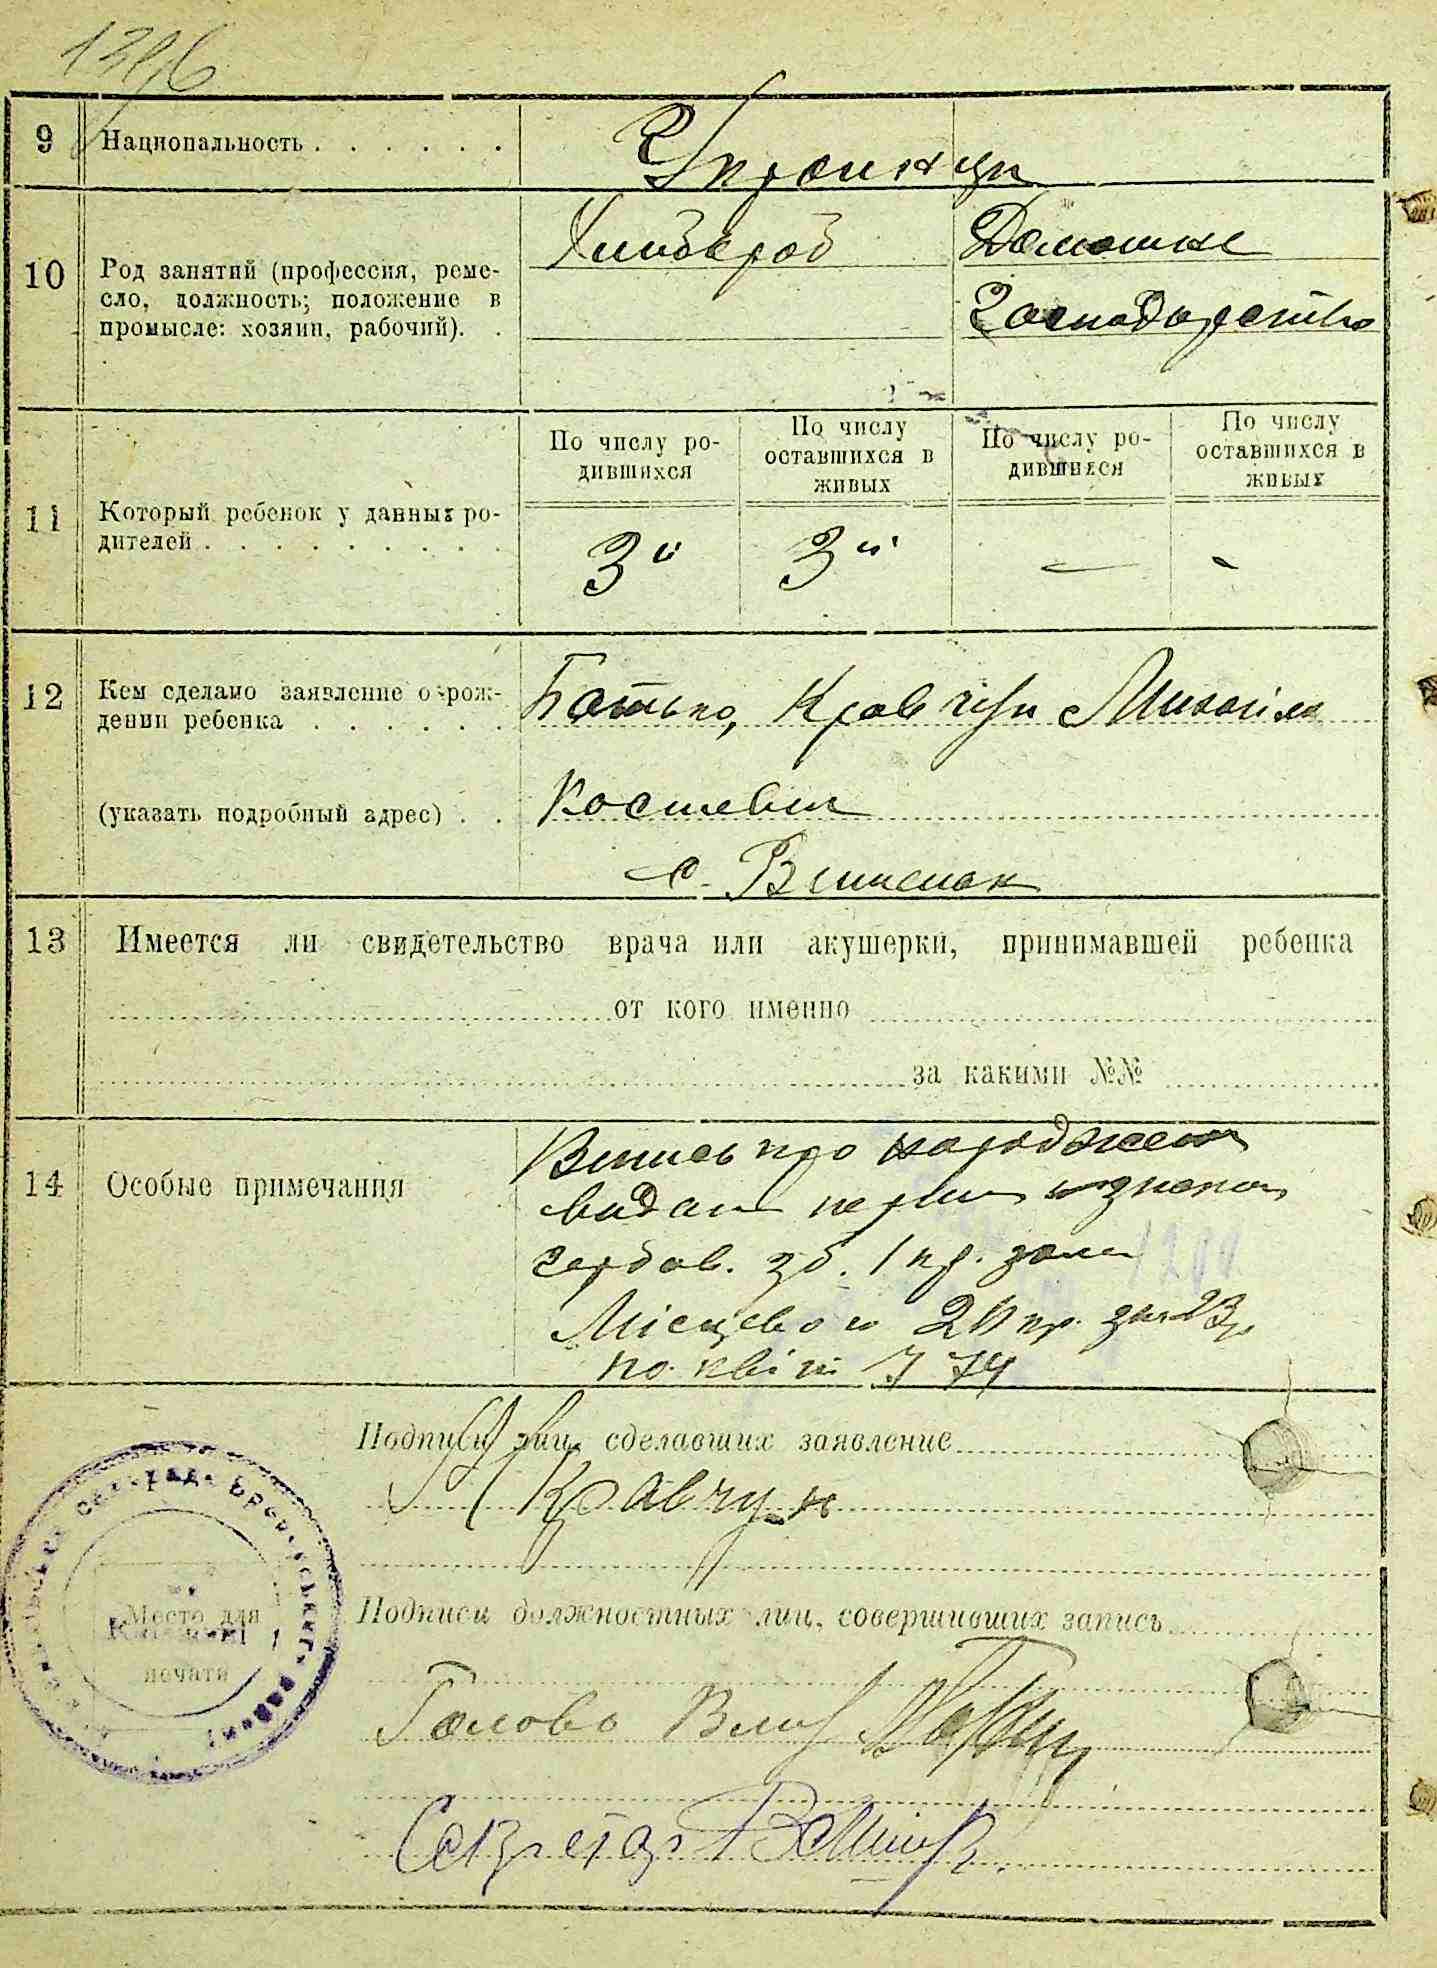 1396
9 Национальность . . . . . . Українці
10 Род занятий (профессия, реме-
сло, должность; положение в
промысле: хозяин, рабочий). .
Хлибороб
Домашнє
Господарство
11 Который ребенок у данных ро-
дителей . . . . . . . . .
По числу ро-
дившихся
По числу
оставшихся в
живых
По числу ро-
дившихся
По числу
оставшихся в
живых
3й 3й — -
12 Кем сделано заявление о рож-
дении ребенка . . . . . .
Батько, Кравчук Михайло
(указать подробный адрес) . .
с.
13 Имеется ли свидетельство врача или акушерки, принимавшей ребенка
от кого именно
за какими №№
14 Особые примечания
Випись про народжен
видан
гербов. зб. 1 кр.
Місцевого 20 кр.
по квіт 774
Подписи лиц, сделавших заявление
Кравчук
Место для
печати
Подписи должностных лиц, совершивших запись
Голова
Секретар